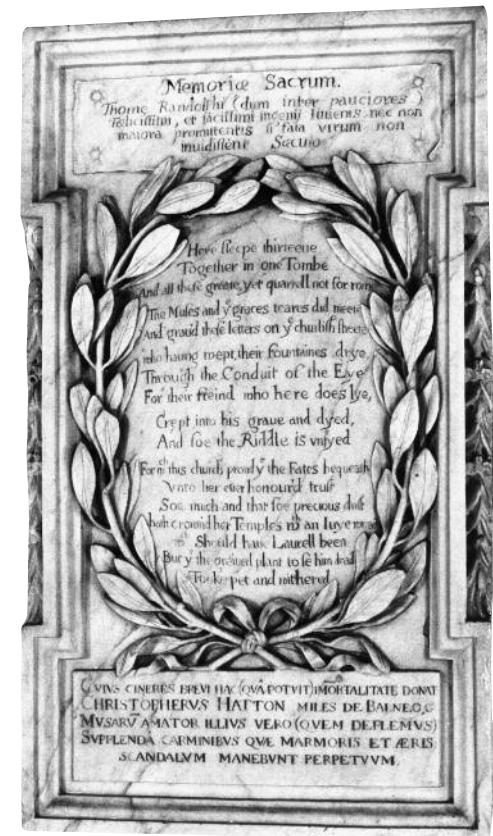 Memoriæ Sacrum.
Thomæ Randolphi (dum inter pauciores)
Fœlicissimi, et facillimi ingenij Iuvenis nec non
maiora promittentis si fata virum non
invidissent Sæculo
Here sleepe thirteene
Together in one Tombe
And all these greate, yet quarrell not for rome
The Muses and yᵉ graces teares did meete
And grav'd these letters on yᵉ churlish sheete
who having wept, their fountaines drye,
Through the Conduit of the Eye
For their freind who here does lye,
Crept into his grave and dyed,
And soe the Riddle is untyed
For wᶜʰ this church, proud yᵗ the Fates bequeath
Unto her ever honour'd trust
Soe much and that soe precious dust
hath crownd her Temples wᵗʰ an Iuye
wᶜʰ Should have Laurell been
But yᵗ the greived plant to se him dead
Tooke pet and withered
CVIVS CINERES BREVI HAC (QVÂ POTVIT) IM̃ORTALITATE DONAT
CHRISTOPHERVS HATTON MILES DE BALNEO,
MVSARṼ AMATOR ILLIVS VERO (QVEM DEFLEMVS)
SVPPLENDA CARMINIBVS QVÆ MARMORIS ET ÆRIS
SCANDALVM MANEBVNT PERPETVVM.